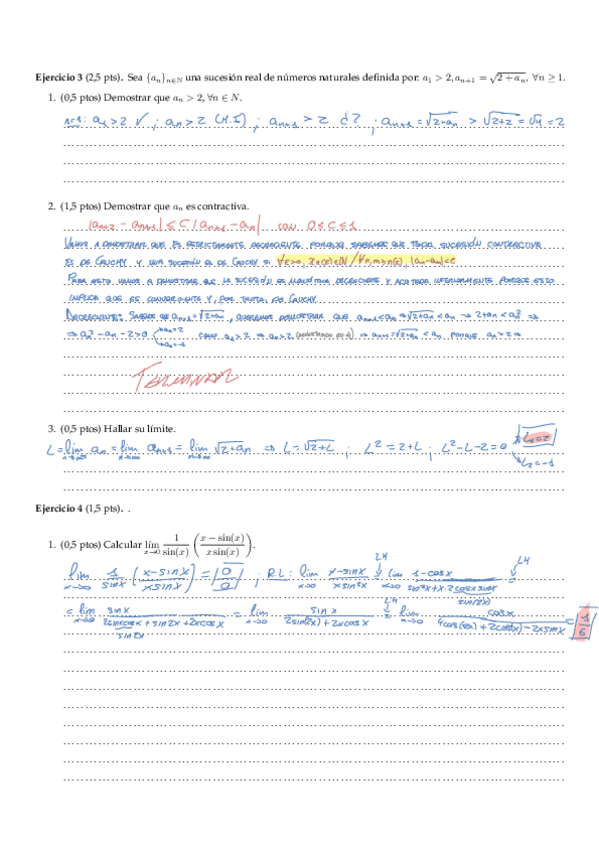 Ejercicio 3 (2,5 pts). Sea {a_n}_{n∈ℕ} una sucesión real de números naturales definida por: a_1 > 2, a_{n+1} = √(2 + a_n), ∀n ≥ 1.
1. (0,5 ptos) Demostrar que a_n > 2, ∀n ∈ N.
n=1: a_1 > 2 ✓ ; a_n > 2 (H.I) ; a_{n+1} > 2 ¿? ; a_{n+1} = √(2+a_n) > √(2+2) = √4 = 2
2. (1,5 ptos) Demostrar que a_n es contractiva.
|a_{n+2} - a_{n+1}| ≤ C |a_{n+1} - a_n| con 0 ≤ C ≤ 1
Vamos a demostrar que es estrictamente decreciente porque sabemos que toda sucesión contractiva
es de Cauchy y una sucesión es de Cauchy si ∀ε>0, ∃n(ε)∈ℕ / ∀n,m≥n(ε), |a_n-a_m|<ε
Para esto vamos a demostrar que la sucesión es monótona decreciente y acotada inferiormente porque esto
implica que es convergente y, por tanto, de Cauchy.
Decreciente: Sabemos que a_{n+1} = √(2+a_n), queremos demostrar que a_{n+1} < a_n ⇒ √(2+a_n) < a_n → 2+a_n < a_n² ⇒
⇒ a_n² - a_n - 2 > 0 a_n=2 a_n=-1 como a_1 > 2 ⇒ a_n > 2 (demostrado en 1) ⇒ a_{n+1} = √(2+a_n) < a_n porque a_n > 2 ⇒
Terminar
3. (0,5 ptos) Hallar su límite.
L = lim_{n→∞} a_n = lim_{n→∞} a_{n+1} = lim_{n→∞} √(2+a_n) ⇒ L = √(2+L) ; L² = 2+L ; L²-L-2=0 L_1=2 L_2=-1
Ejercicio 4 (1,5 pts). .
1. (0,5 ptos) Calcular lím_{x→0} 1/sin(x) ((x − sin(x))/(x sin(x))).
lim_{x→0} 1/sin x ((x-sin x)/(x sin x)) = |0/0| ; R.L: lim_{x→0} (x-sin x)/(x sin²x) =(LH) lim (1-cos x)/(sin²x + x·2cos x sin x) sin(2x) LH
= lim_{x→0} sin x/(2 sin x cos x + sin 2x + 2x cos x) sin 2x = lim_{x→0} sin x/(2 sin(2x) + 2x cos x) =(LH) lim_{x→0} cos x/(4cos(2x) + 2cos(x) - 2x sin x) = 1/6